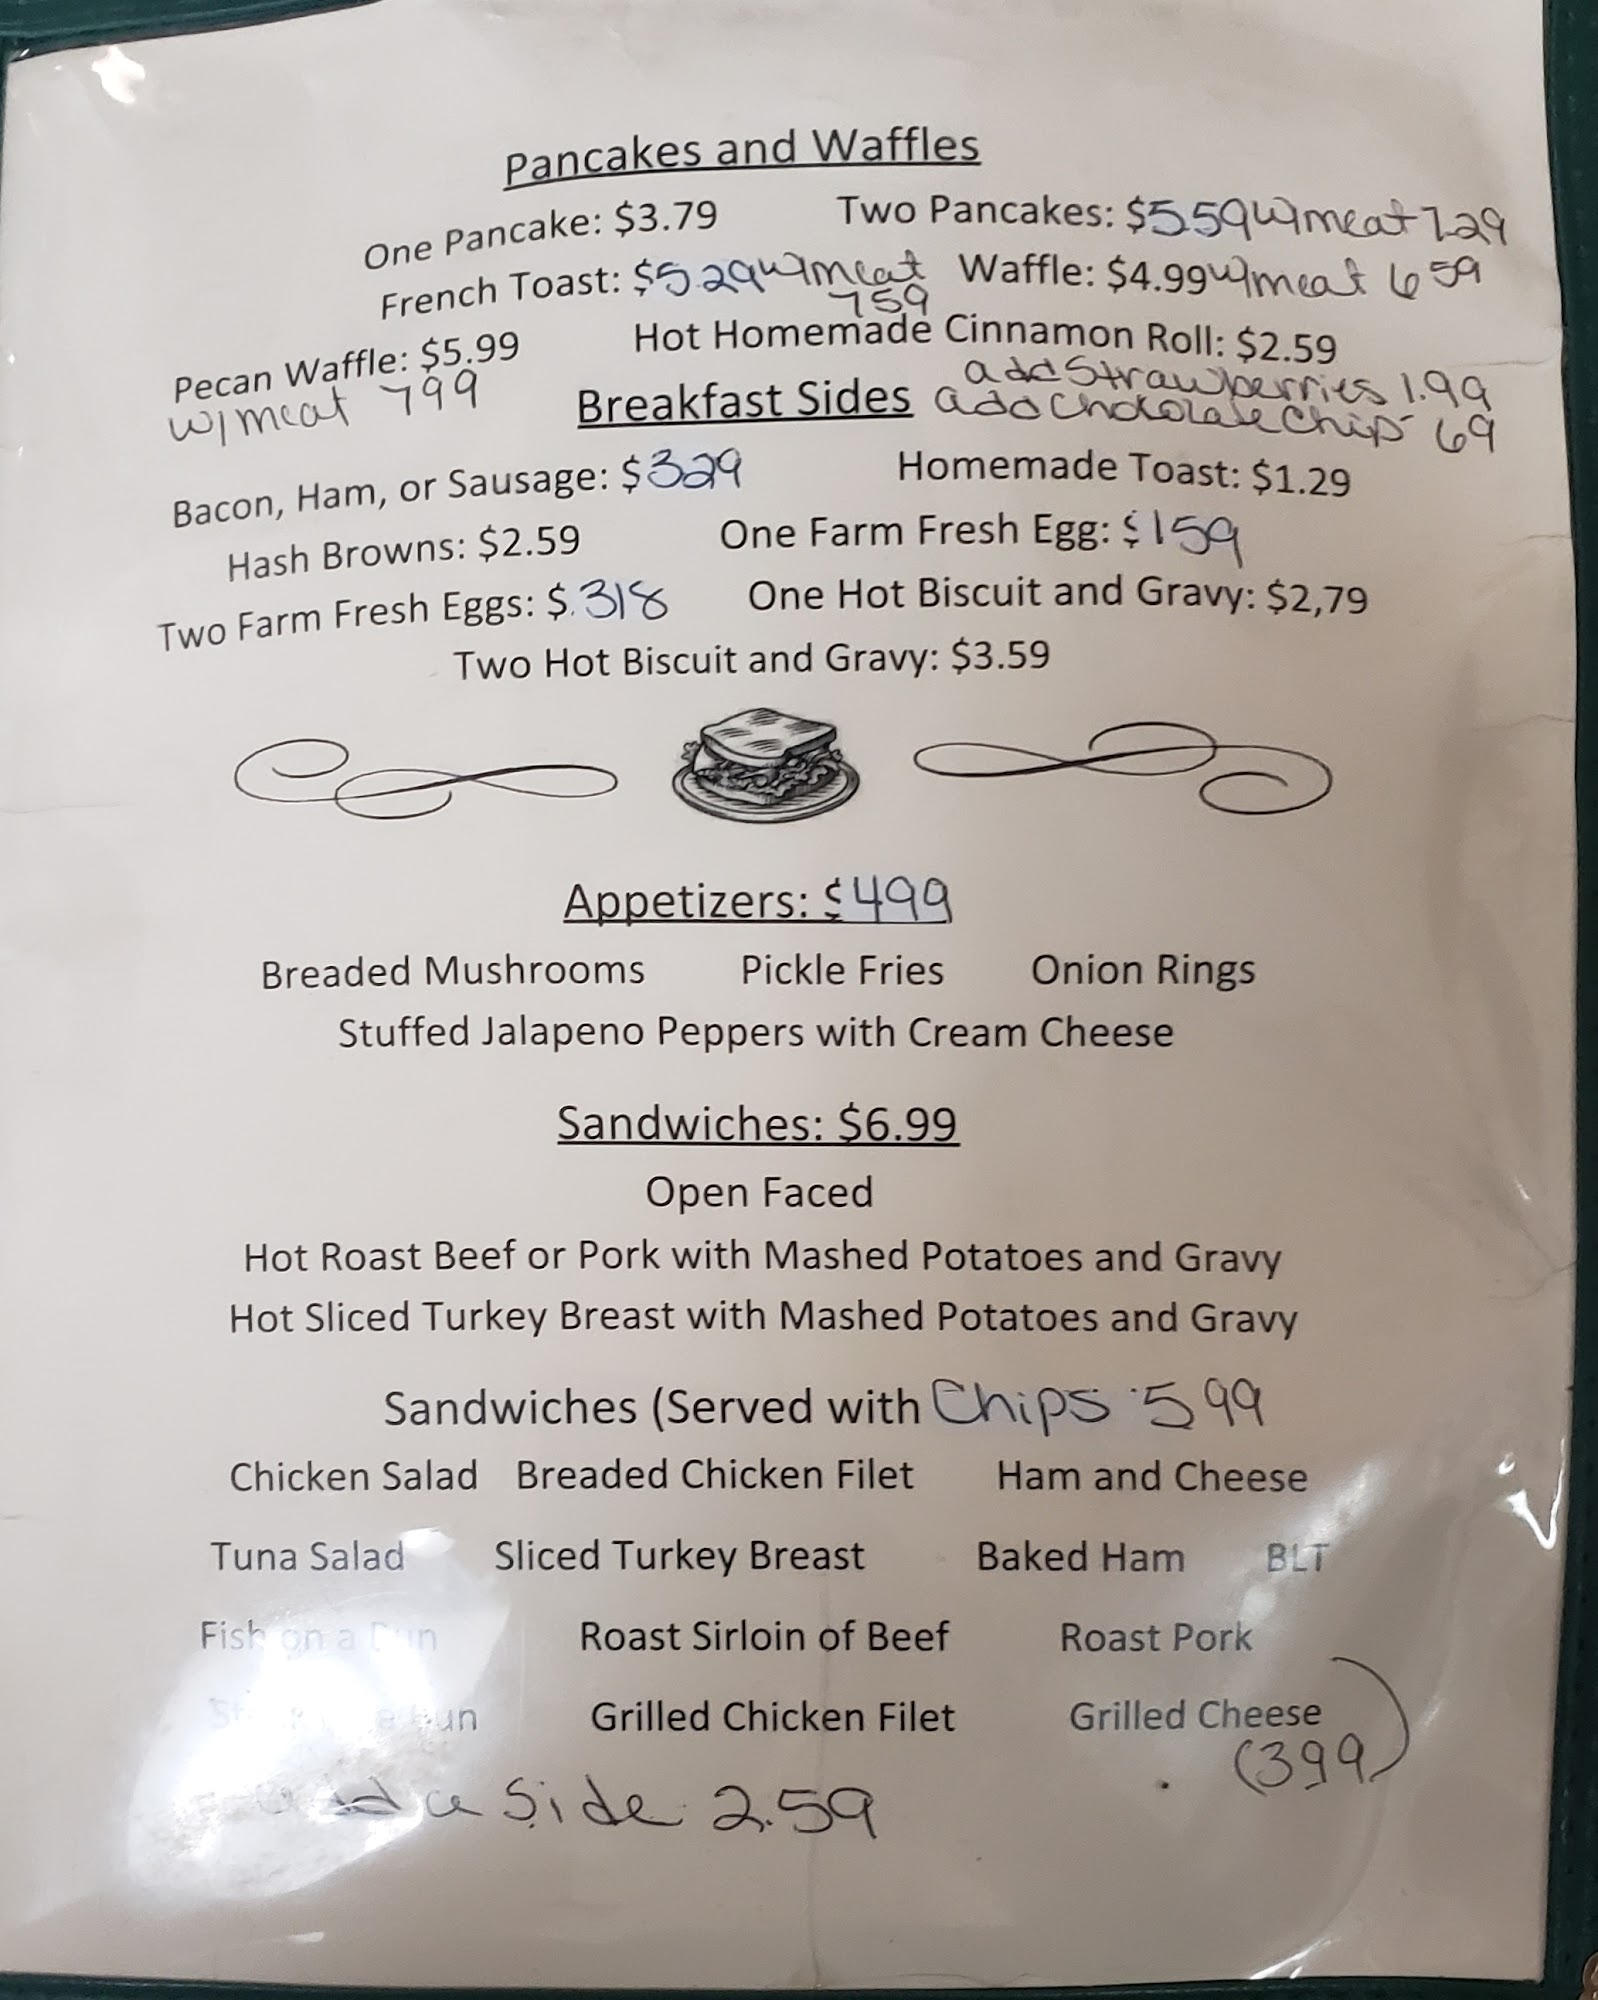 Pancakes and Waffles
One Pancake: $3.79 Two Pancakes: $5.59 w/meat 7.29
French Toast: $5.29 w/meat 759 Waffle: $4.99 w/meat 659
Pecan Waffle: $5.99 Hot Homemade Cinnamon Roll: $2.59
w/meat 799 add Strawberries 1.99
Breakfast Sides add Chocolate Chip 69
Bacon, Ham, or Sausage: $329 Homemade Toast: $1.29
Hash Browns: $2.59 One Farm Fresh Egg: $159
Two Farm Fresh Eggs: $.318 One Hot Biscuit and Gravy: $2,79
Two Hot Biscuit and Gravy: $3.59
Appetizers: $499
Breaded Mushrooms Pickle Fries Onion Rings
Stuffed Jalapeno Peppers with Cream Cheese
Sandwiches: $6.99
Open Faced
Hot Roast Beef or Pork with Mashed Potatoes and Gravy
Hot Sliced Turkey Breast with Mashed Potatoes and Gravy
Sandwiches (Served with Chips 599
Chicken Salad Breaded Chicken Filet Ham and Cheese
Tuna Salad Sliced Turkey Breast Baked Ham BLT
Fish on a Bun Roast Sirloin of Beef Roast Pork
Bun Grilled Chicken Filet Grilled Cheese
(399)
add a Side 2.59